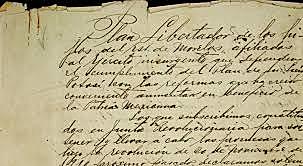 Plan Libertador de los hi-
jos del Est. de Morelos, afiliados
al Ejército Insurgente que defienden
el cumplimiento del Plan de San Luis
Potosí, con las reformas que ha creido
conveniente aumentar en beneficio de
la Patria Mexicana.
Los que subscribimos, constitui-
dos en Junta Revolucionaria para sos-
tener y llevar a cabo las promesas que
hizo la revolucion de 20 de
1910